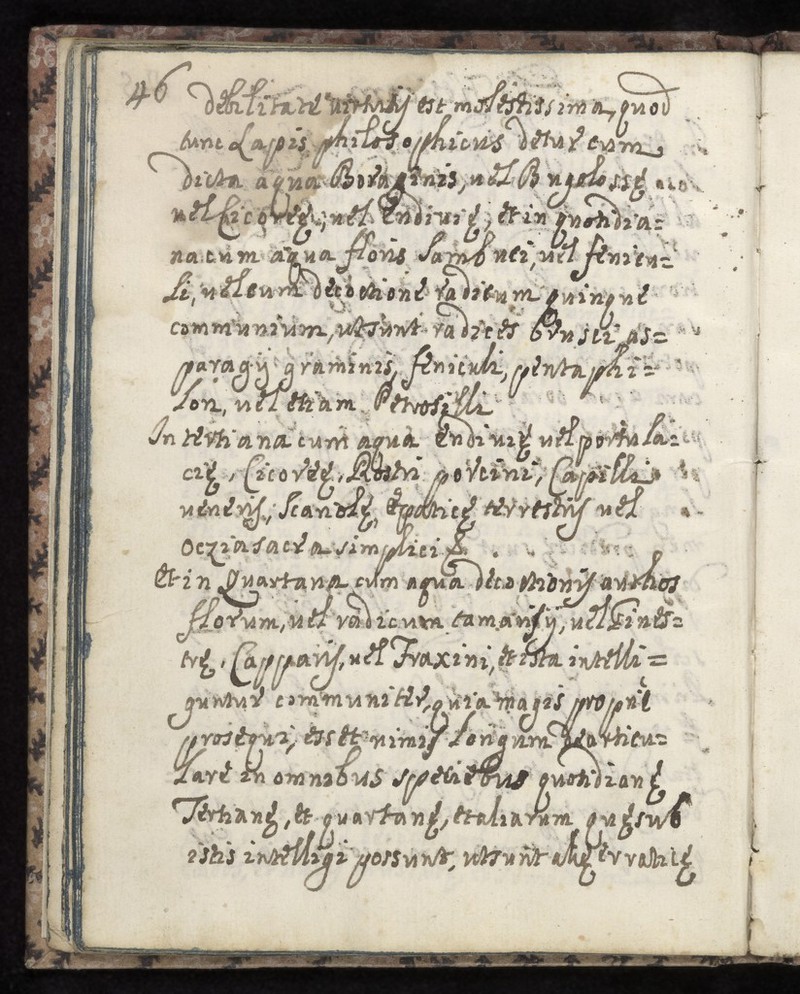 46
debilitate virtutis est molestissima, quod
tunc Lapis philosophicus detur cum
dicta aqua Boraginis, uel Buglossę
uel Cicoreę, uel Endiuię, et in quotidia=
na cum aqua floris Sambuci, uel fenicu=
li, uel cum decoctione radicum quinque
communium, ut sunt radices brusci, as=
paragij graminis, feniculi, pentaphi=
lon, uel etiam Petrosilli
In tertiana cum aqua Endiuię uel portula=
cię, Cicoreę, Rostri porcini, Capilli
ueneris, Scariolę, Epaticę terrestris uel
simplici
Et in Quartana cum aqua decoctionis
florum, uel radicum tamarisij, uel Gines=
trę, Capparis, uel Fraxini, et ista intelli=
guntur communiter, quia magis proprie
prosequi, esset nimis Longum dearticu=
lare in omnibus spetiebus quotidianę
Tertianę, et quartanę, et aliarum quę sub
istis intelligi possunt, ut sunt alię erraticę